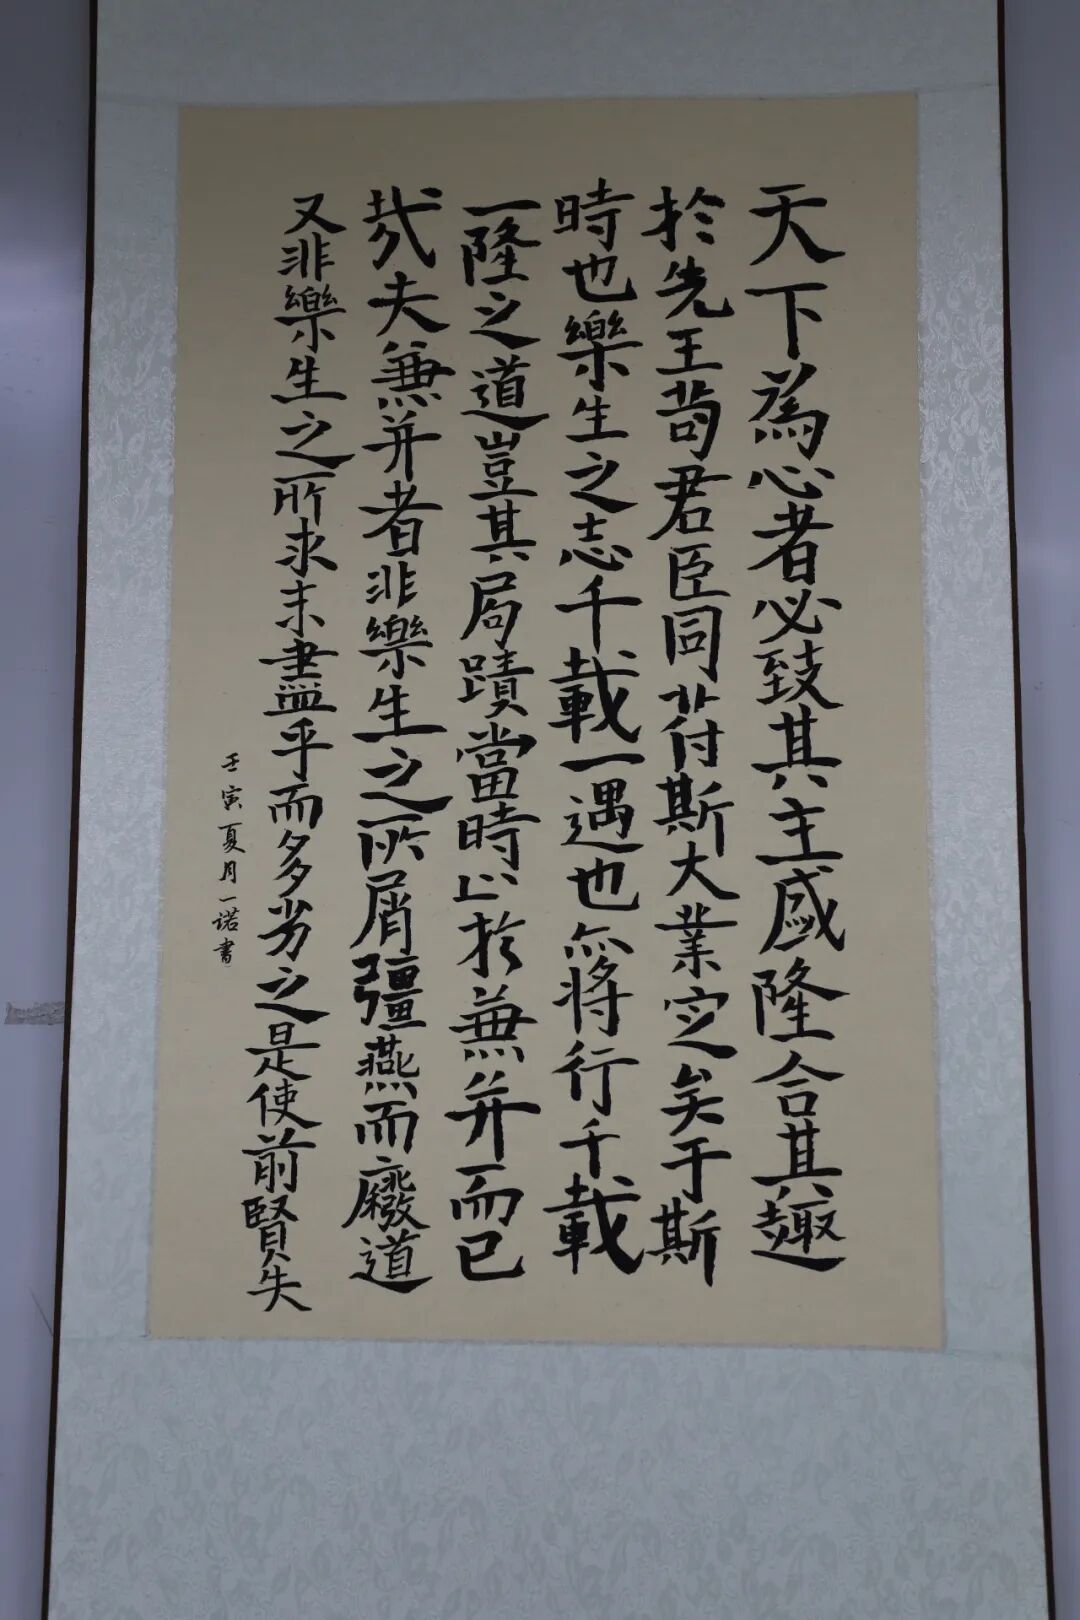 天下為心者必致其主盛隆合其趣
於先王苟君臣同苻斯大業定矣于斯
時也樂生之志千載一遇也亦將行千載
一隆之道豈其局蹟當時止於兼并而已
哉夫兼并者非樂生之所屑彊燕而廢道
又非樂生之所求未盡乎而多劣之是使前賢失
壬寅夏月一诺書